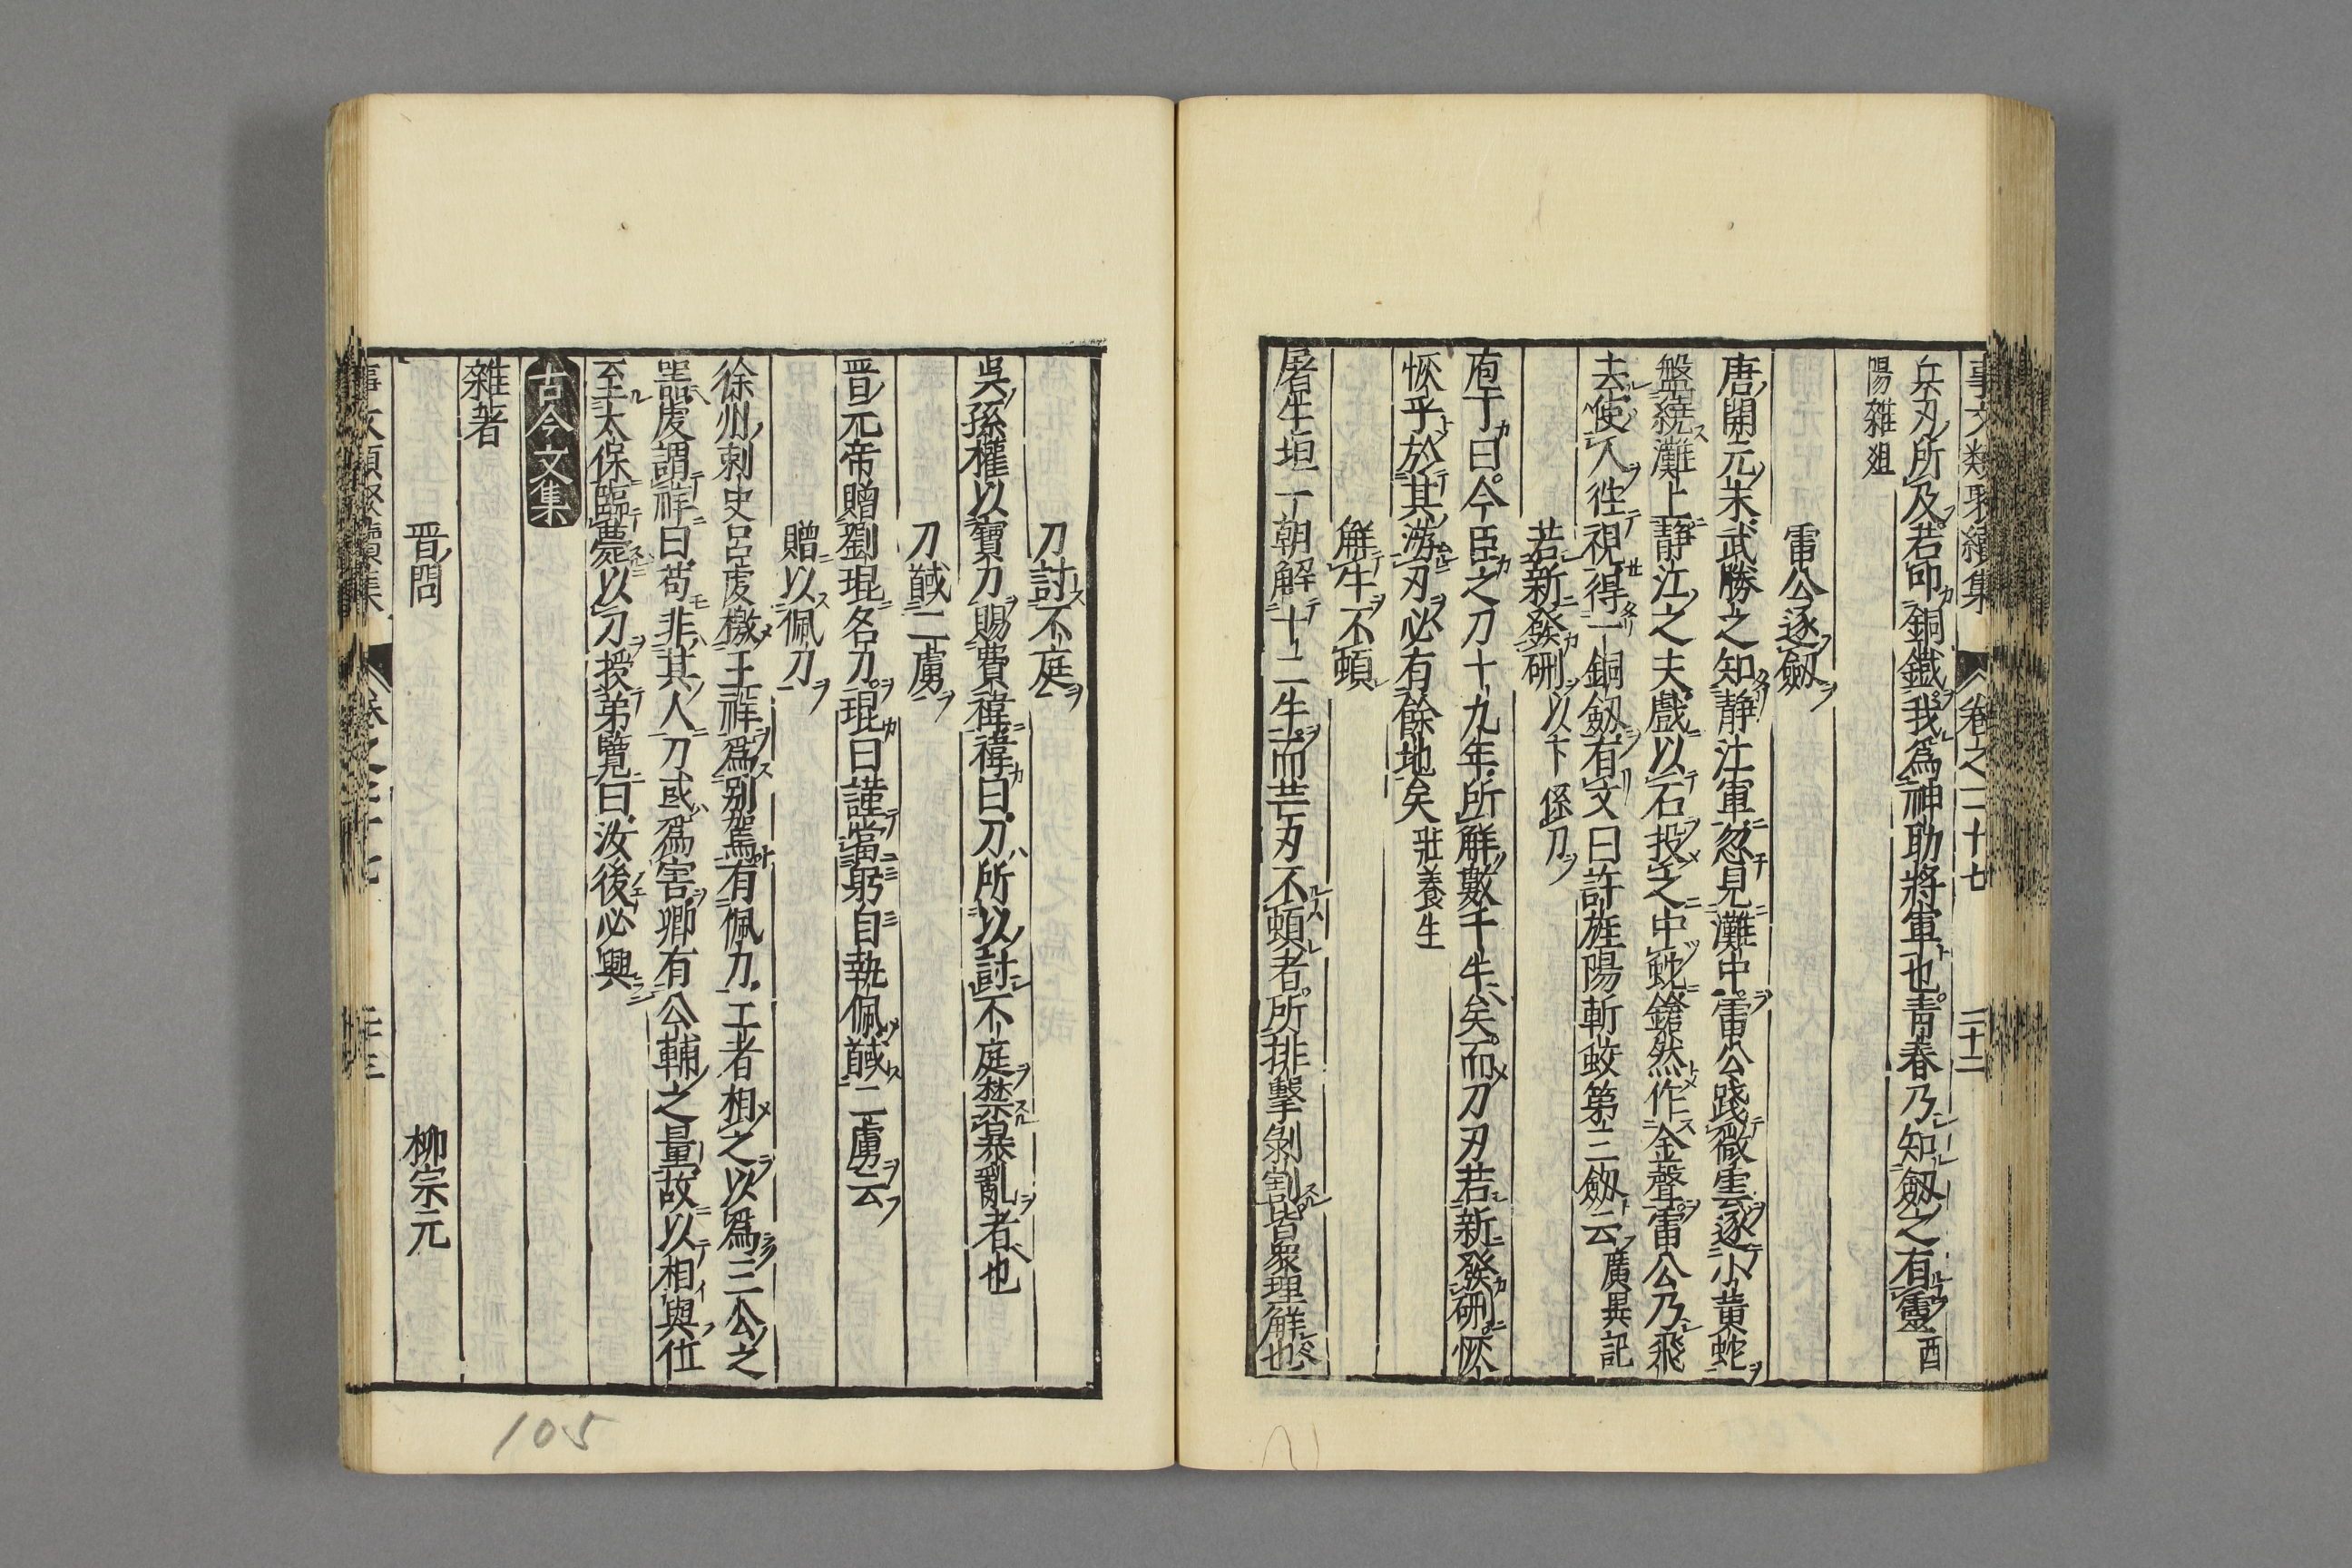 事文類聚續集 卷之二十七 二十二
兵刃所及若卬銅鐵我爲神助將軍也青春乃知劔之有靈酉
陽雜俎
雷公逐劔
唐開元末武勝之知静江軍忽見灘中雷公踐微雲逐小黄蛇
盤繞灘上静江之夫戲以石投之中蛇鎗然作金聲雷公乃飛
去使人徃視得一銅劔有文曰許旌陽斬蛟第三劔云廣異記
若新發硎以下係刀
庖丁曰今臣之刀十九年所解數千牛矣而刀刃若新發硎恢
恢乎於其游刃必有餘地矣莊養生
解牛不頓
屠牛垣一朝解十二牛而芒刃不頓者所排擊剝割皆衆理解也
刀討不庭
吳孫權以寶刀賜費禕禕曰刀所以討不庭禁暴亂者也
刀馘二虜
晋元帝贈劉琨名刀琨曰謹當躬自執佩馘二虜云
贈以佩刀
徐州刺史呂虔檄王祥爲别駕有佩刀工者相之以爲三公之
噐虔謂祥曰苟非其人刀或爲害卿有公輔之量故以相與位
至太保臨薨以刀授弟覽曰汝後必興
古今文集
雜著
晋問 柳宗元
105